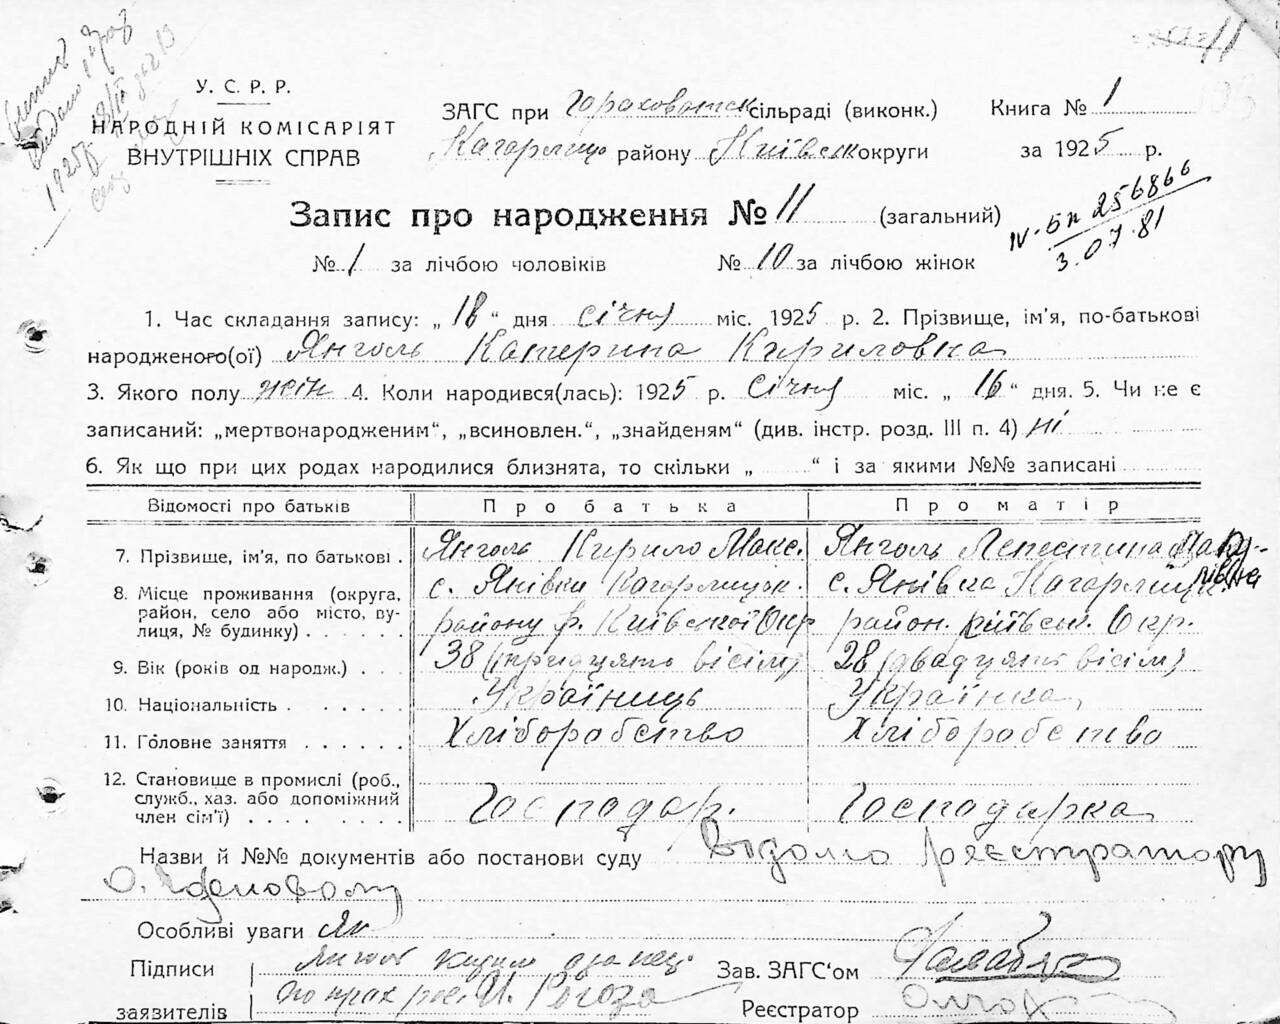 11
У. С. Р. Р.
НАРОДНІЙ КОМІСАРІЯТ
ВНУТРІШНІХ СПРАВ
ЗАГС при Гороховатск сільраді (виконк.)
Кагарлицьк району Київськ округи
Книга № 1
за 1925 р.
Запис про народження № 11 (загальний)
IV-БК 256866
3.07.81
№ 1 за лічбою чоловіків № 10 за лічбою жінок
1. Час складання запису: „18“ дня січня міс. 1925 р. 2. Прізвище, ім'я, по-батькові
народженого(ої) Янголь Катерина Кириловна
3. Якого полу жін 4. Коли народився(лась): 1925 р. січня міс. „16“ дня. 5. Чи не є
записаний: „мертвонародженим“, „всиновлен.“, „знайденям“ (див. інстр. розд. III п. 4) ні
6. Як що при цих родах народилися близнята, то скільки „ “ і за якими №№ записані
Відомості про батьків Про батька Про матір
7. Прізвище, ім'я, по батькові . Янголь Кирило Макс. Янголь
8. Місце проживання (округа, район, село або місто, вулиця, № будинку) . . . . . с. Янівка Кагарлицьк. району Київської Окр с. Янівка Кагарлицьк. район. Київськ. Окр.
9. Вік (років од народж.) . . . 38 (тридцять вісім) 28 (двадцять вісім)
10. Національність . . . . . . Україниць Українка
11. Головне заняття . . . . . . Хліборобство Хліборобство
12. Становище в промислі (роб., служб., хаз. або допоміжний член сім'ї) . . . . . . . Господар. Господарка
Назви й №№ документів або постанови суду Відомо реєстратору
Особливі уваги
Підписи
заявителів
Зав. ЗАГС'ом
Реєстратор